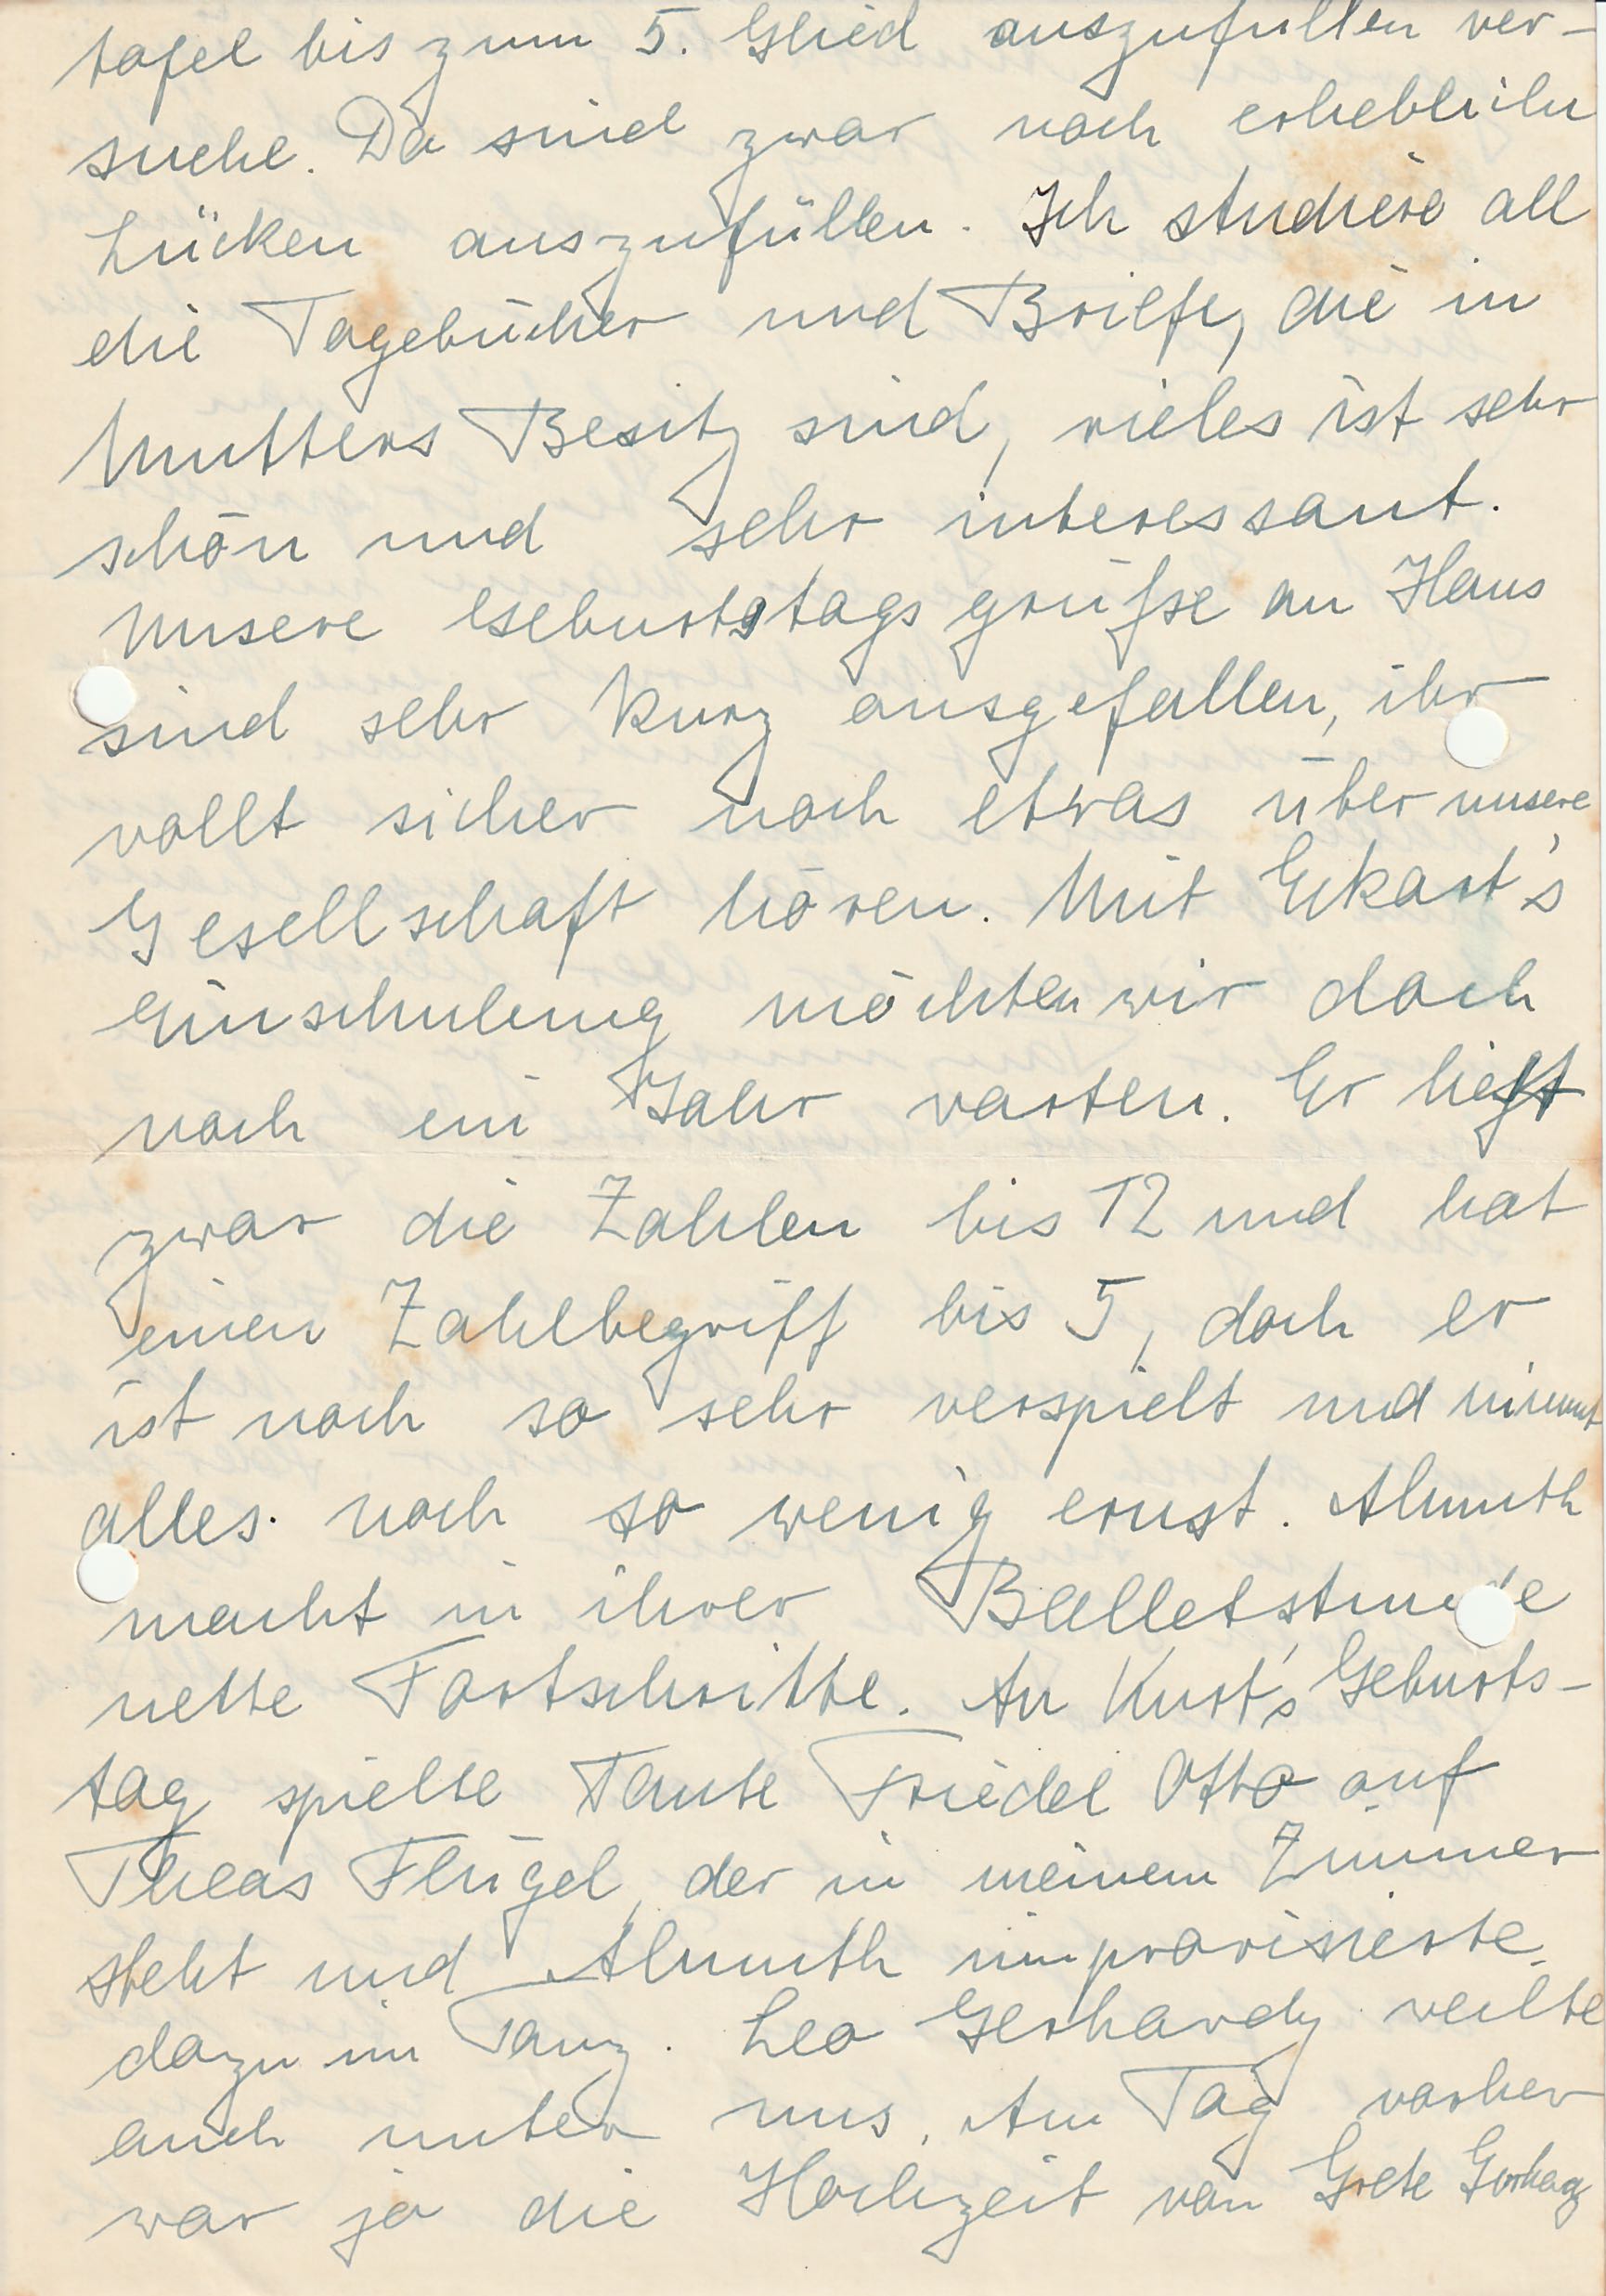 tafel bis zum 5. Glied auszufüllen ver-
suche. Da sind zwar noch erhebliche
Lücken auszufüllen. Ich studiere all
die Tagebücher und Briefe, die in
Mutters Besitz sind, vieles ist sehr
schön und sehr interessant.
Unsere Geburtstagsgrüße an Hans
sind sehr kurz ausgefallen, ihr
wollt sicher noch etwas über unsere
Gesellschaft hören. Mit Eckart's
Einschulung möchten wir doch
noch ein Jahr warten. Er ließt
zwar die Zahlen bis 12 und hat
einen Zahlbegriff bis 5, doch er
ist noch so sehr verspielt und nimmt
alles noch so wenig ernst. Almuth
macht in ihrer Balletstunde
nette Fortschritte. An Kurt's Geburts-
tag spielte Tante Friedel Otto auf
Theas Flügel, der in meinem Zimmer
steht und Almuth improvisierte
dazu im Tanz. Leo Gerhardy weilte
auch unter uns. Am Tag vorher
war ja die Hochzeit von Grete